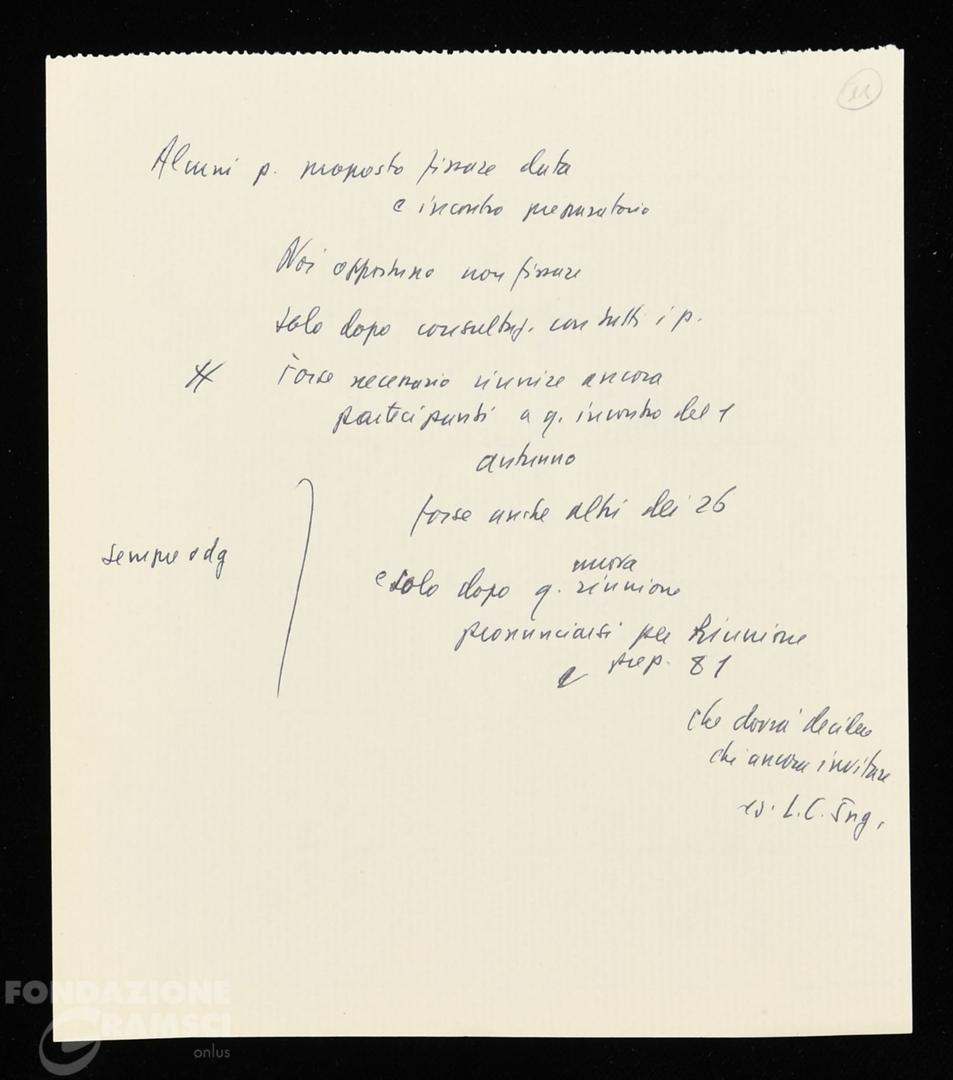 11
Alcuni p. proposto fissare data
e incontro preparatorio
Noi opportuno non fissare
solo dopo consultaz. con tutti i p.
Forse necessario riunire ancora
partecipanti a q. incontro del 1
autunno
forse anche altri dei 26
sempre odg
nuova
e solo dopo q. riunione
pronunciarsi per Riunione
e prep. 81
che dovrà decidere
chi ancora invitare
es. L.C. Jug.
FONDAZIONE
GRAMSCI
onlus